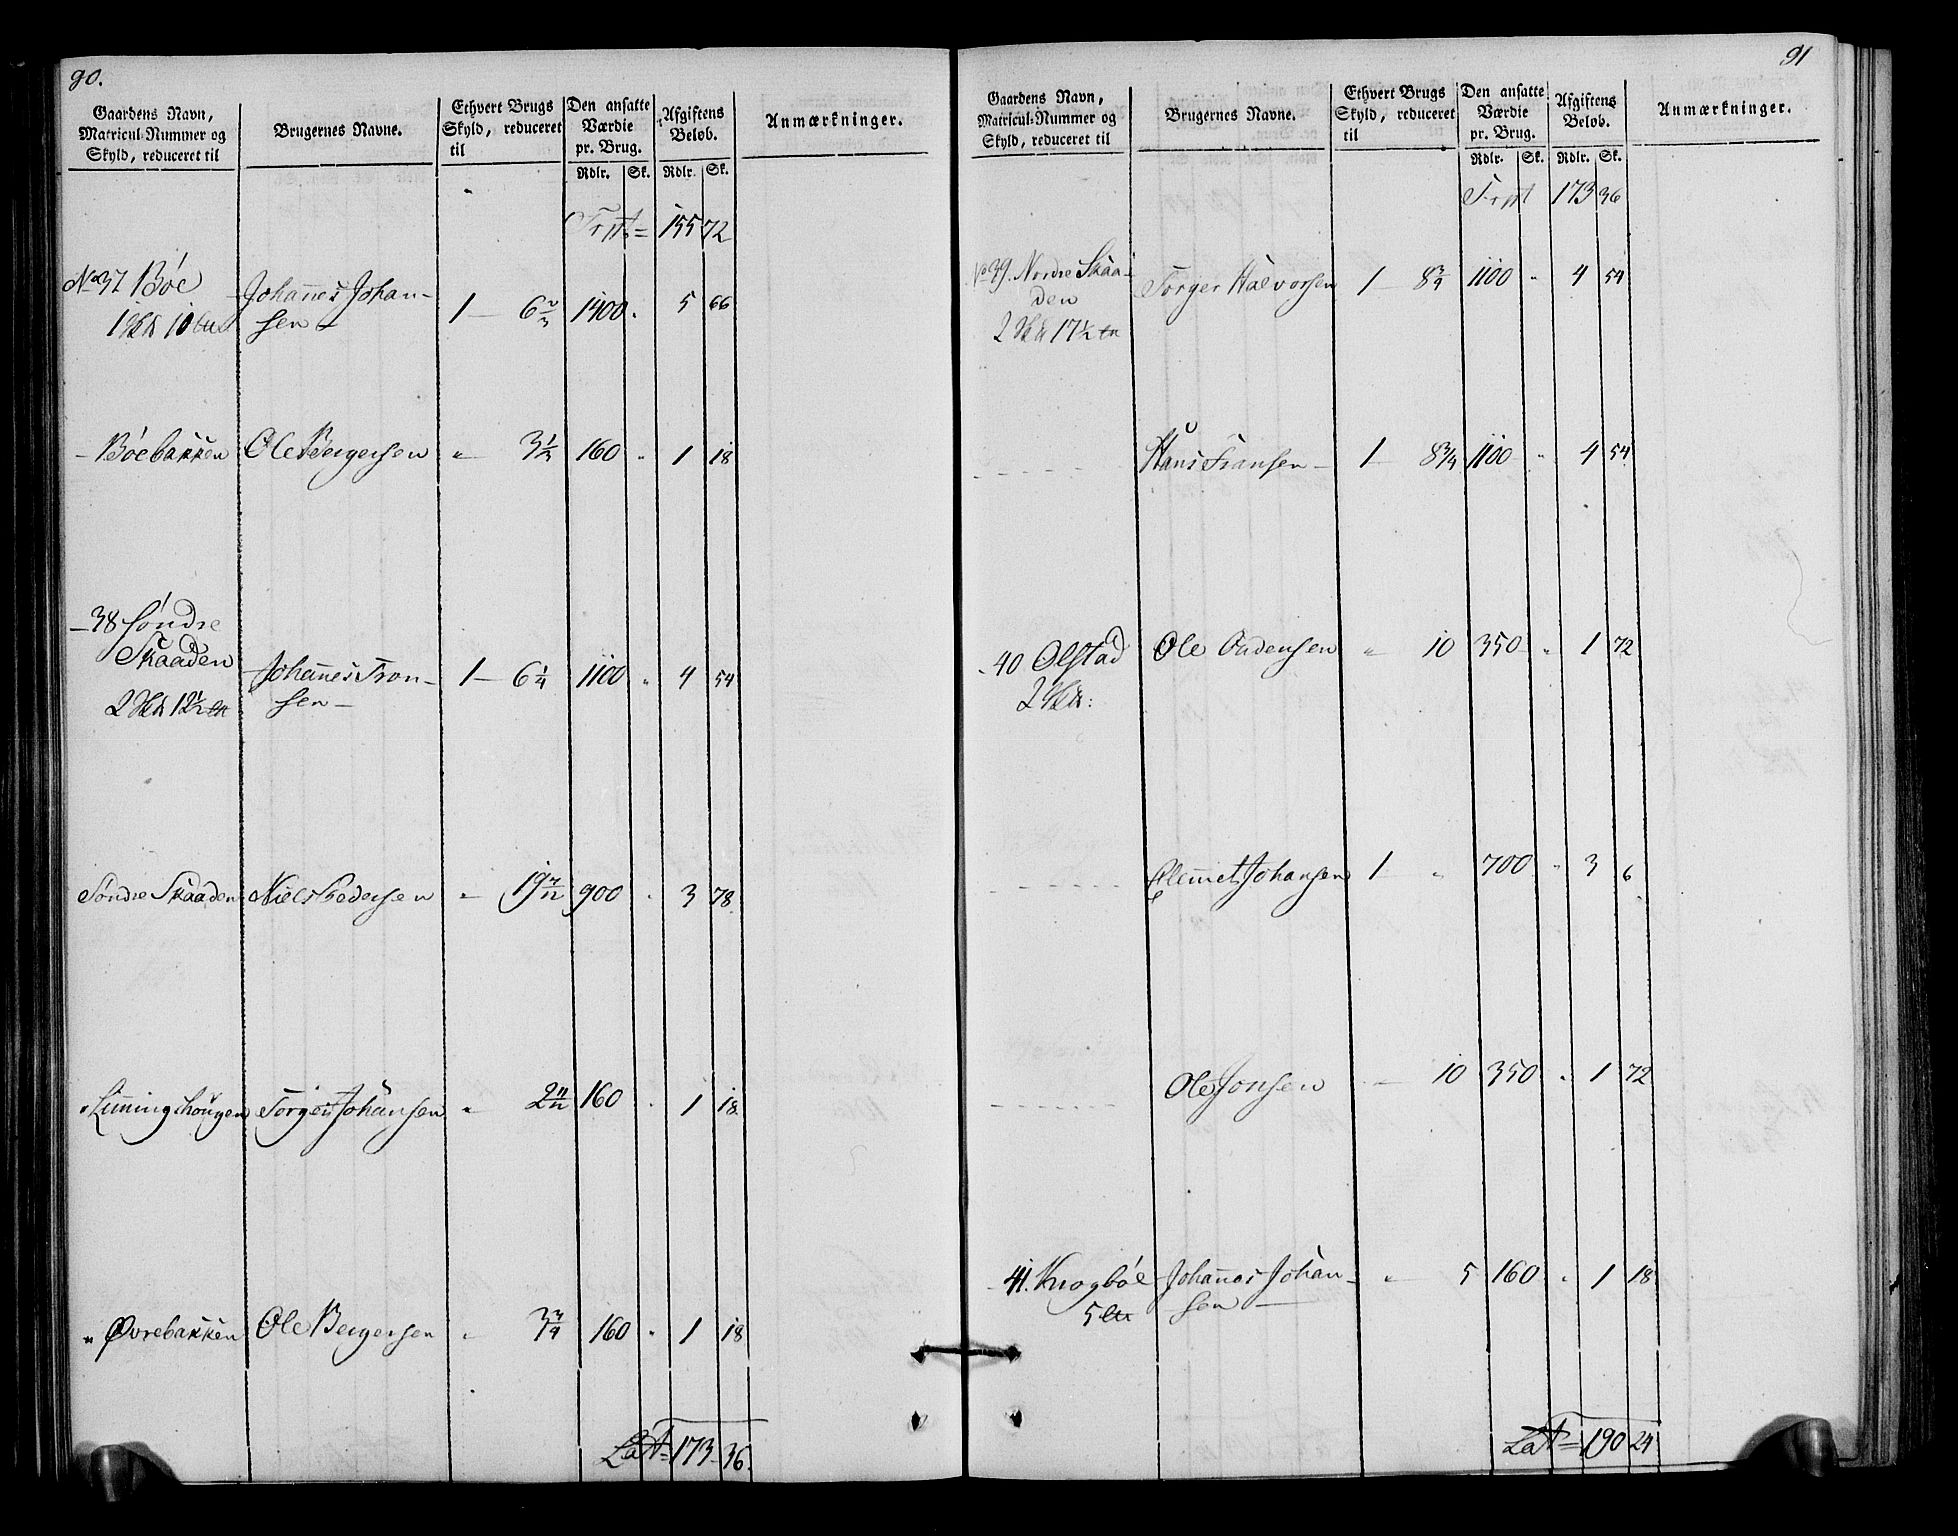 90.
Gaardens Navn, Matricul-Nummer og Skyld, reduceret til | Brugernes Navne. | Ethvert Brugs Skyld, reduceret til | Den ansatte Værdie pr. Brug. | Afgiftens Beløb. | Anmærkninger.
Rdlr. Sk. Rdlr. Sk.
Trpt = 155 72
No 37 Bøe Johannes Johan-
1 10 sen – 1 – 6 2/3 1400 " 5 66
– Bøebakken Ole Bergersen " 3 1/3 160 " 1 18
– 38 Søndre
Skaaden Johannes Tron- 1 – 6 1/4 1100 " 4 54
2 12 1/2 sen –
Søndre Skaaden Niels Pedersen " 19 7/12 900 " 3 78
" Linningshougen Torger Johansen " 2 11/12 160 " 1 18
" Øvrebakken Ole Bergersen " 3 3/4 160 " 1 18
Lat = 173 – 36.
91
Gaardens Navn, Matricul-Nummer og Skyld, reduceret til | Brugernes Navne. | Ethvert Brugs Skyld, reduceret til | Den ansatte Værdie pr. Brug. | Afgiftens Beløb. | Anmærkninger.
Rdlr. Sk. Rdlr. Sk.
Trpt 173 36
No 39. Nordre Skaa- Torger Halvorsen 1 – 8 3/4 1100 " 4 54
den
2 17 1/2
Hans Transen – 1 – 8 3/4 1100 " 4 54
- 40 Olstad Ole Oudensen " 10 350 " 1 72
2
Clemet Johansen 1 " 700 " 3 6
Ole Jonsen – 10 350 " 1 72
- 41. Krogbøe Johannes Johan- " 5 160 " 1 18
5 sen –
Lat = 190 24